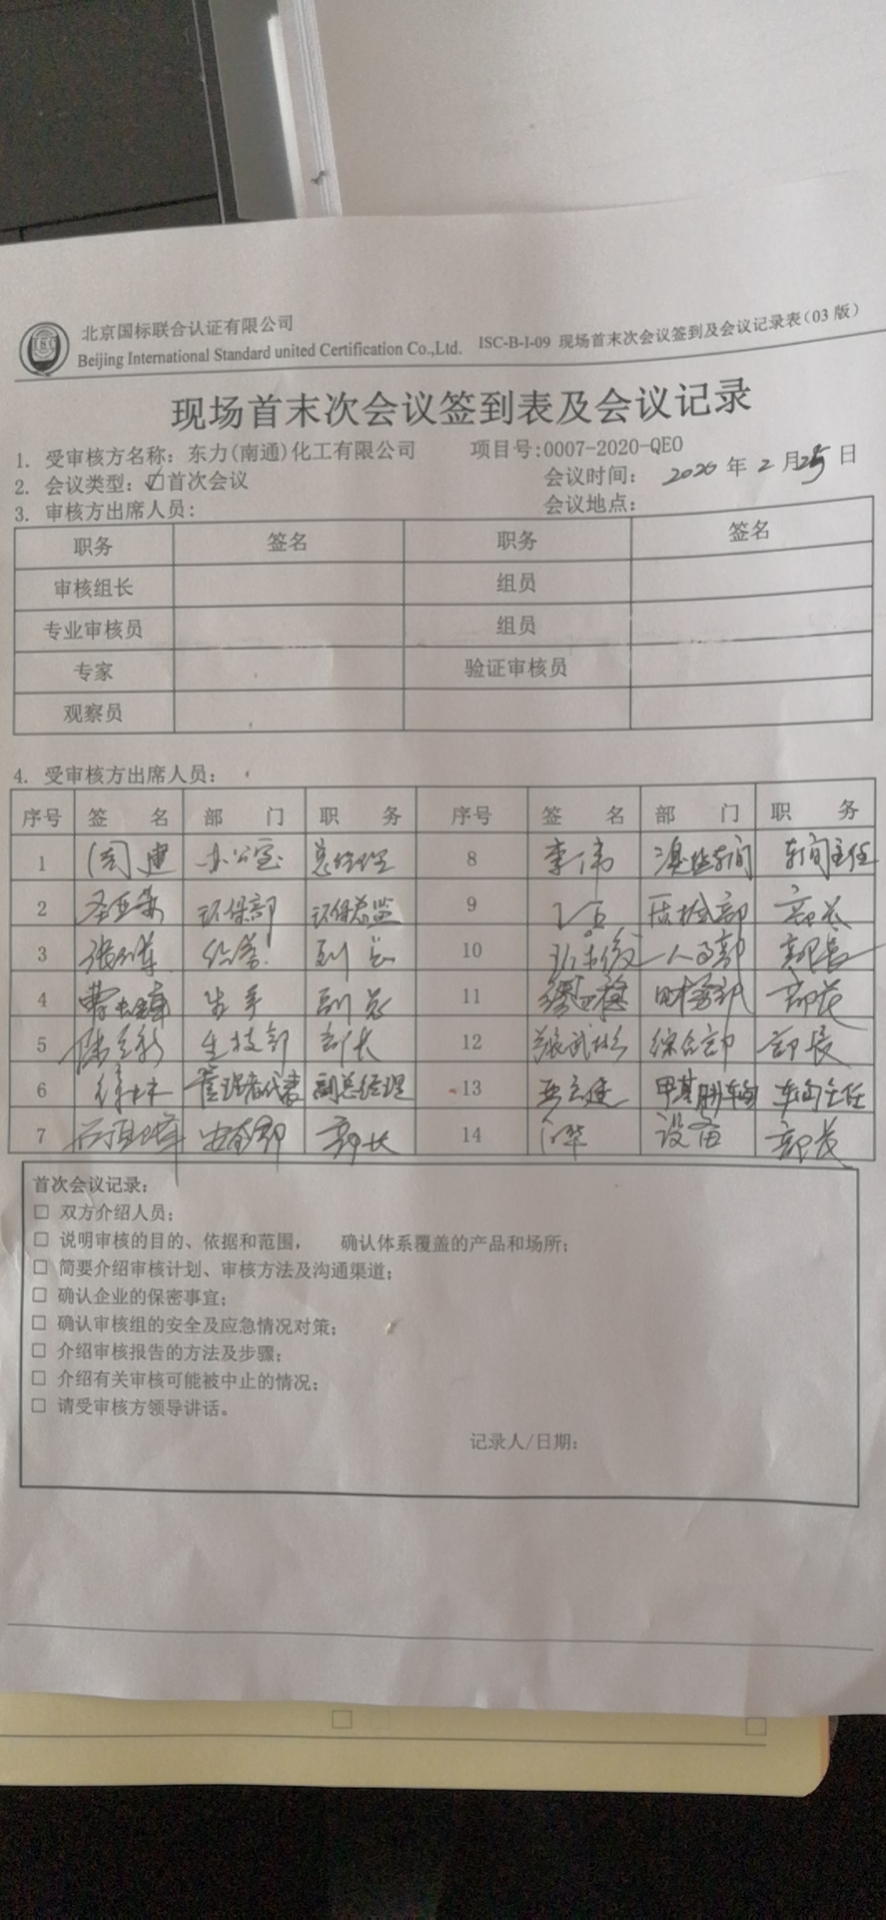 北京国标联合认证有限公司
Beijing International Standard united Certification Co.,Ltd. ISC-B-I-09 现场首末次会议签到及会议记录表(03 版)
现场首末次会议签到表及会议记录
1. 受审核方名称: 东力(南通)化工有限公司 项目号:0007-2020-QEO
2. 会议类型: ☑首次会议 会议时间: 2020 年 2 月 25 日
3. 审核方出席人员: 会议地点:
职务 签名 职务 签名
审核组长 组员
专业审核员 组员
专家 验证审核员
观察员
4. 受审核方出席人员:
序号 签 名 部 门 职 务 序号 签 名 部 门 职 务
1 办公室 总经理 8 李伟 车间 车间主任
2 环保部 环保总监 9 质检部 部长
3 副总 10 人事部 部长
4 曹 副总 11 财务部 部长
5 生技部 部长 12 张武 综合部 部长
6 管理者代表 副总经理 13 甲基肼车间 车间主任
7 安全部 部长 14 设备 部长
首次会议记录:
□ 双方介绍人员;
□ 说明审核的目的、依据和范围, 确认体系覆盖的产品和场所;
□ 简要介绍审核计划、审核方法及沟通渠道;
□ 确认企业的保密事宜;
□ 确认审核组的安全及应急情况对策;
□ 介绍审核报告的方法及步骤;
□ 介绍有关审核可能被中止的情况;
□ 请受审核方领导讲话。
记录人/日期: